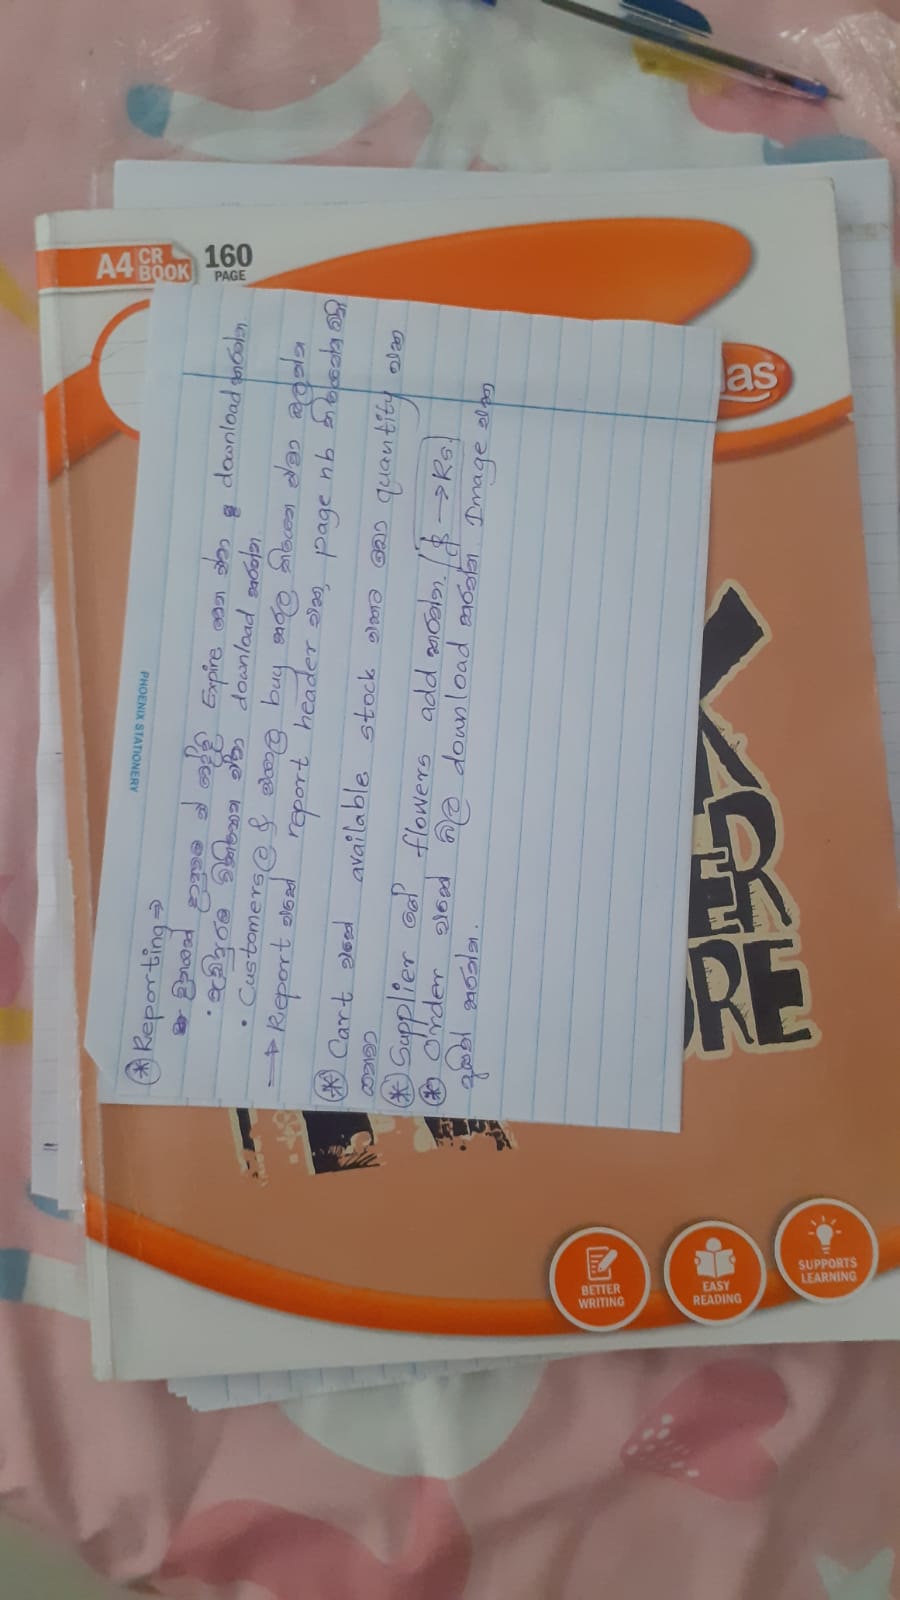 PHOENIX STATIONERY
* Reporting ⇒
දිනයක් දාපුවම ඒ වෙද්දි Expire වෙන ඒවා download කරන්න
• වැඩිපුරම විකිනෙන ඒවා download කරන්න
• Customersලා & එයාල buy කරල තියෙන ඒවා බලන්න
→ Report එකේ report header එක, page nb තියෙන්න ඕනි
* Cart එකේ available stock එකට වඩා quantity එක
යනවා
* Supplier ගේ flowers add කරන්න. ($ → Rs.)
* Order එකේ බිල download කරන්න. Image එක
අයින් කරන්න.
A4 CR BOOK
160 PAGE
BETTER WRITING
EASY READING
SUPPORTS LEARNING